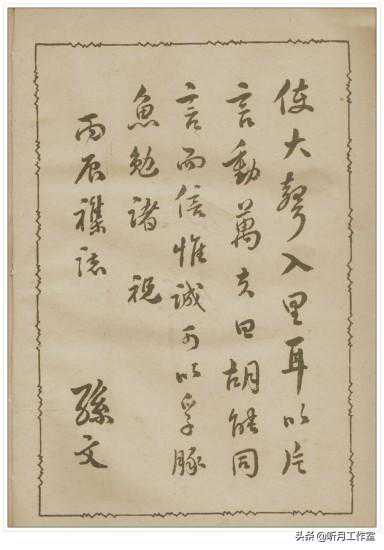 使大聲入里耳以片
言動萬夫曰胡能同
言而信惟誠可以孚豚
魚勉諸祝
丙辰襍誌
孫文
头条@听月工作室